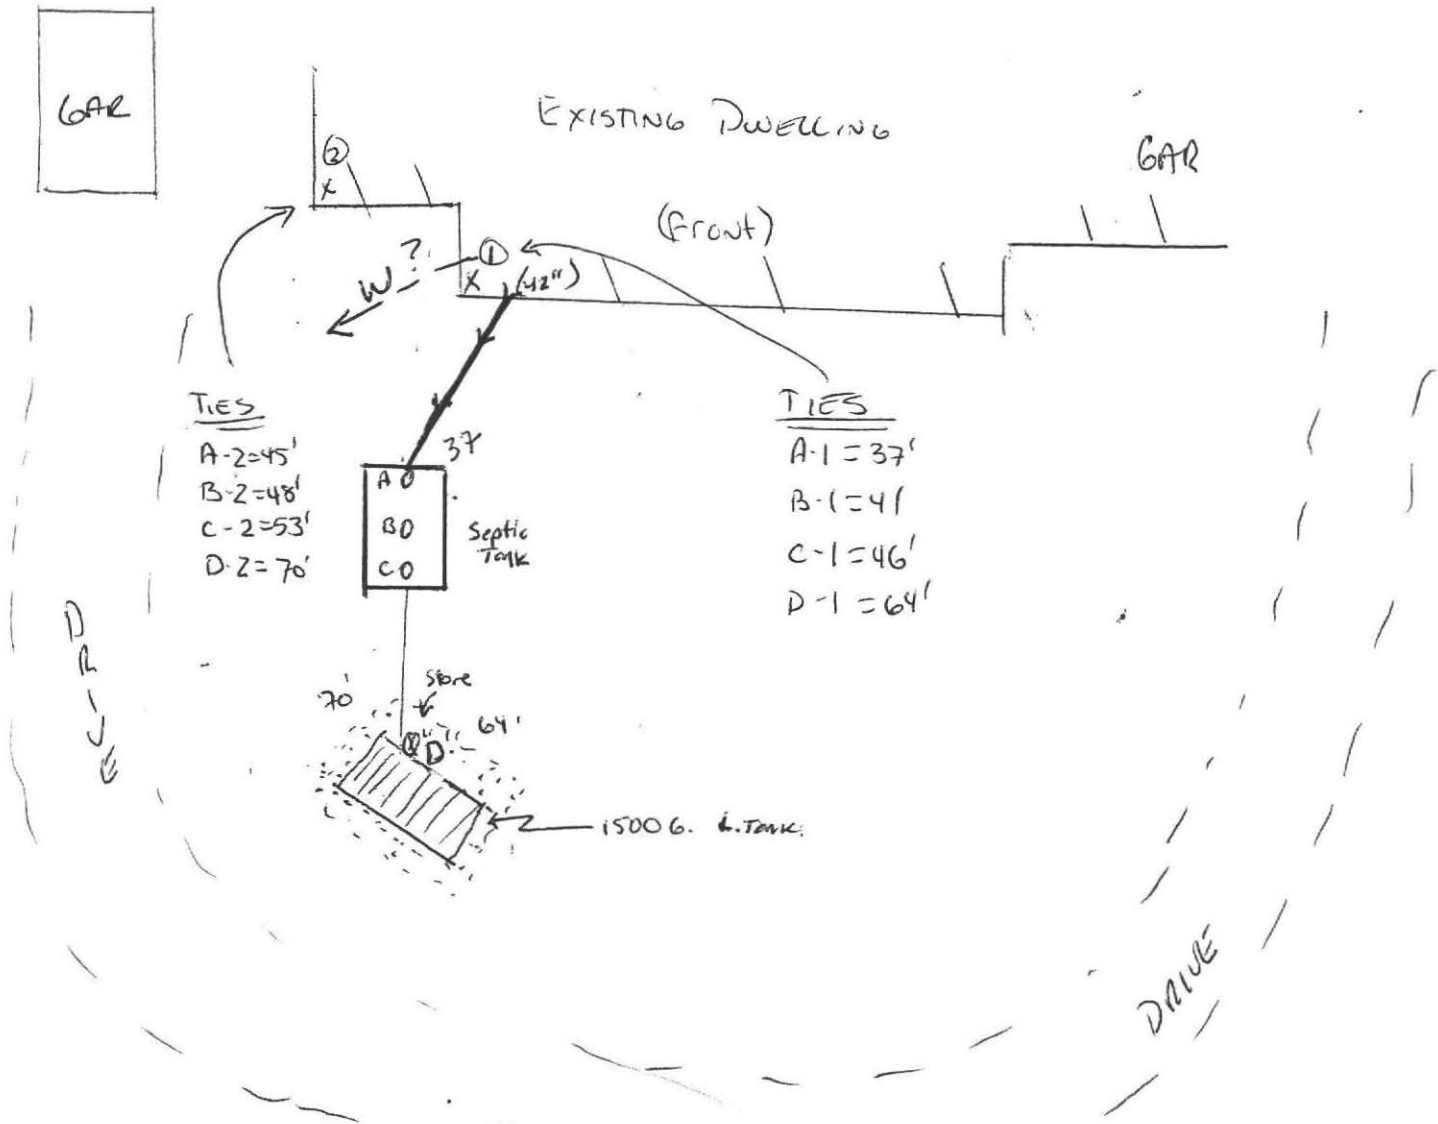 GAR
EXISTING DWELLING
GAR
②
(Front)
①
?
W
X
X
(42")
TIES
A-2=45'
B-2=48'
C-2=53'
D-2=70'
TIES
A-1=37'
B-1=41
C-1=46'
D-1=64'
37
A O
B O
C O
Septic
Tank
DRIVE
70'
Stone
64'
D
1500 G. L. Tank.
DRIVE